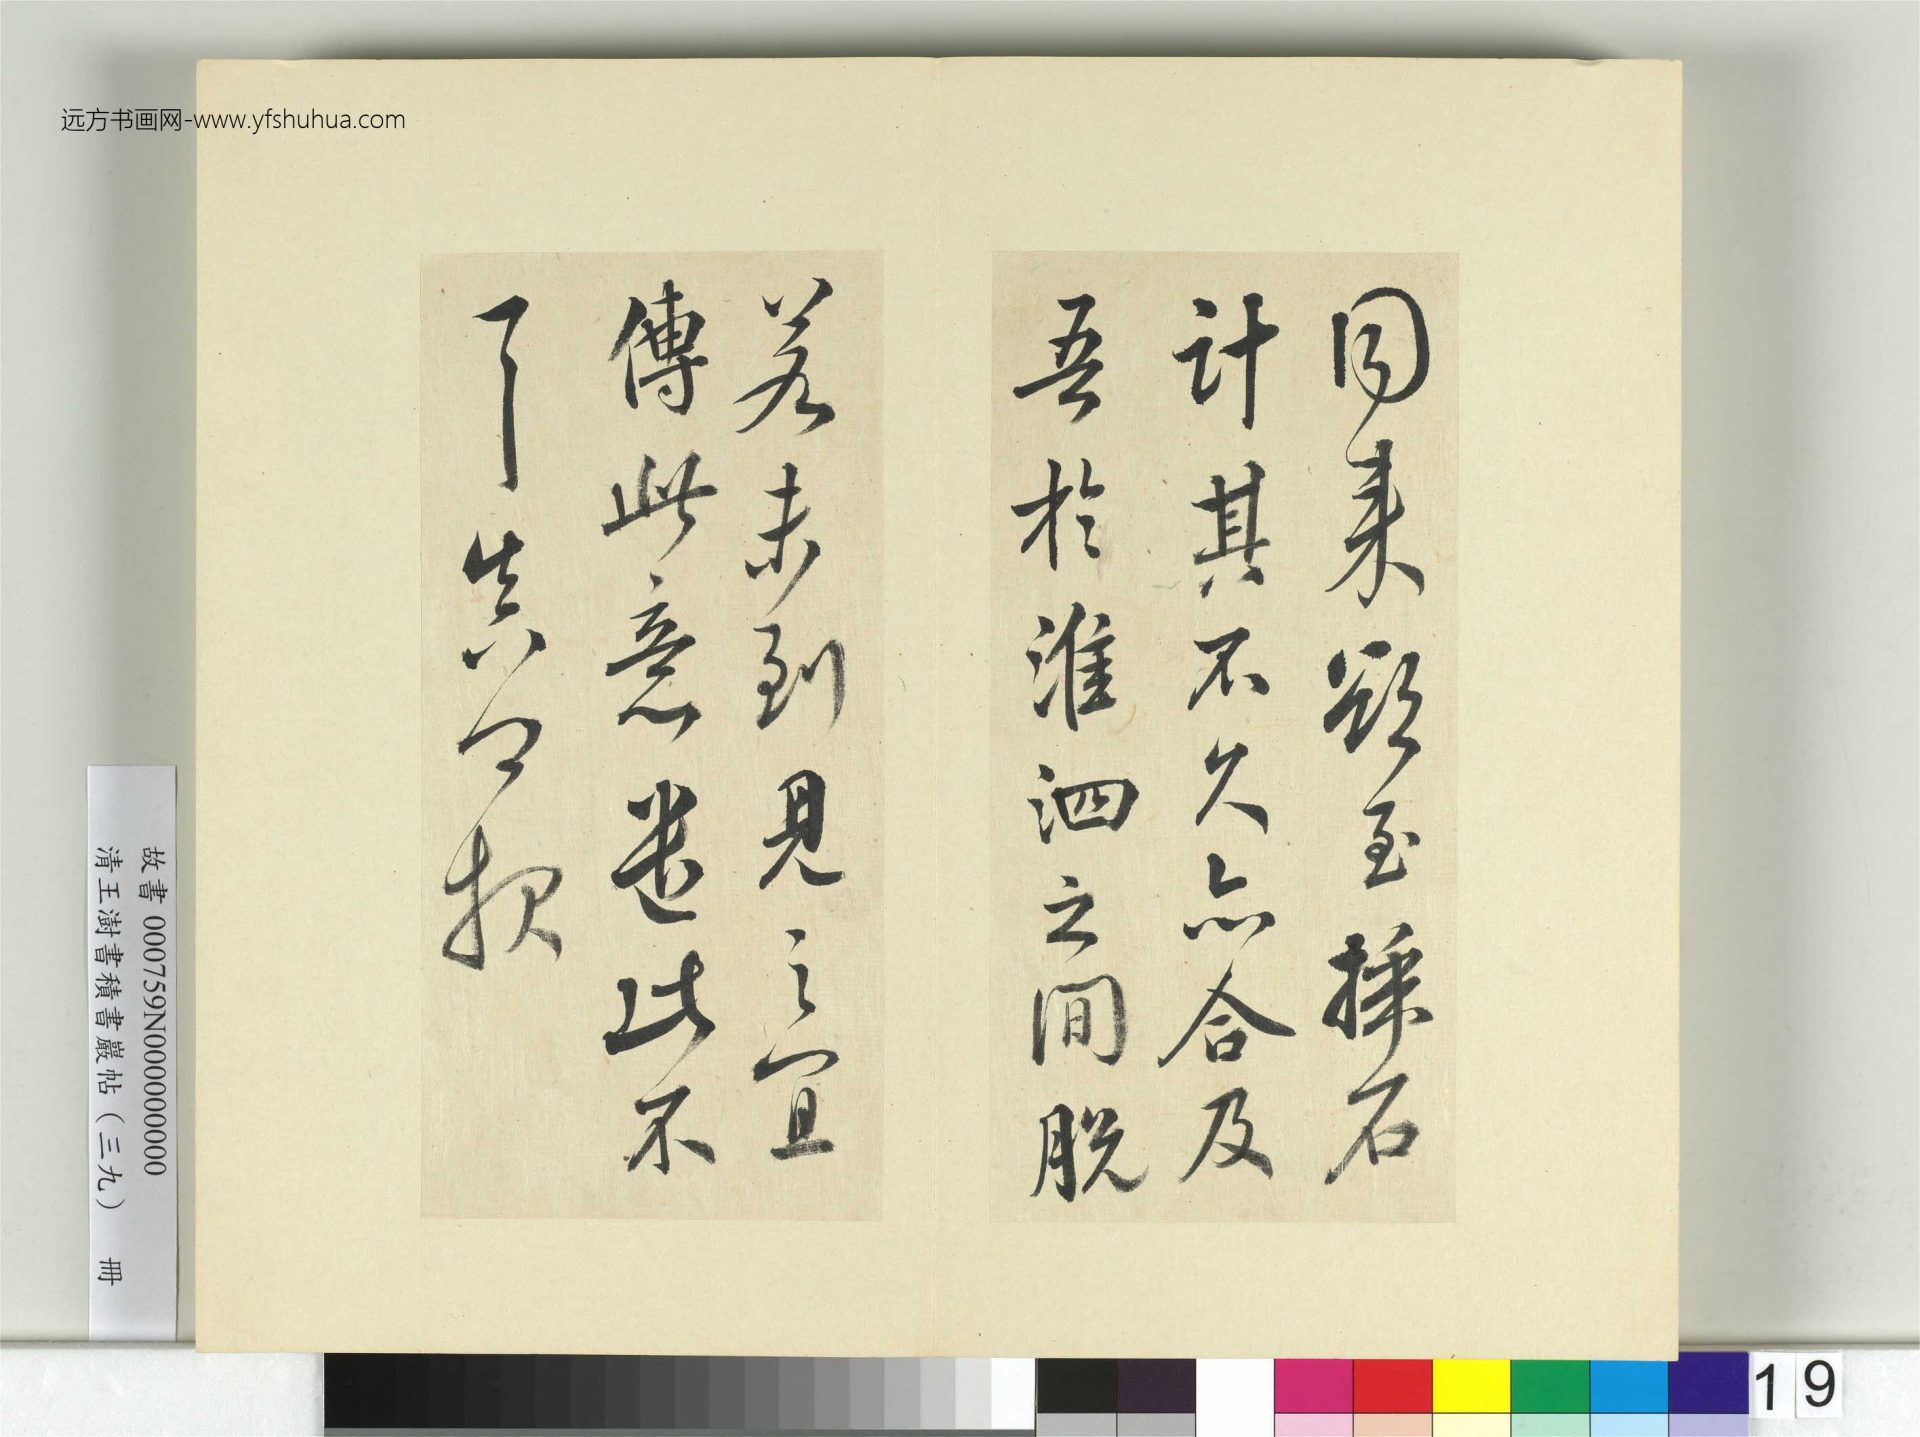 远方书画网-www.yfshuhua.com
同來欲至採石
計其不久亦合及
吾於淮泗之間脫
若未到見之宜
傳此意遣此不
了
故書 000759N000000000
清王澍書積書巖帖（三九） 冊
19